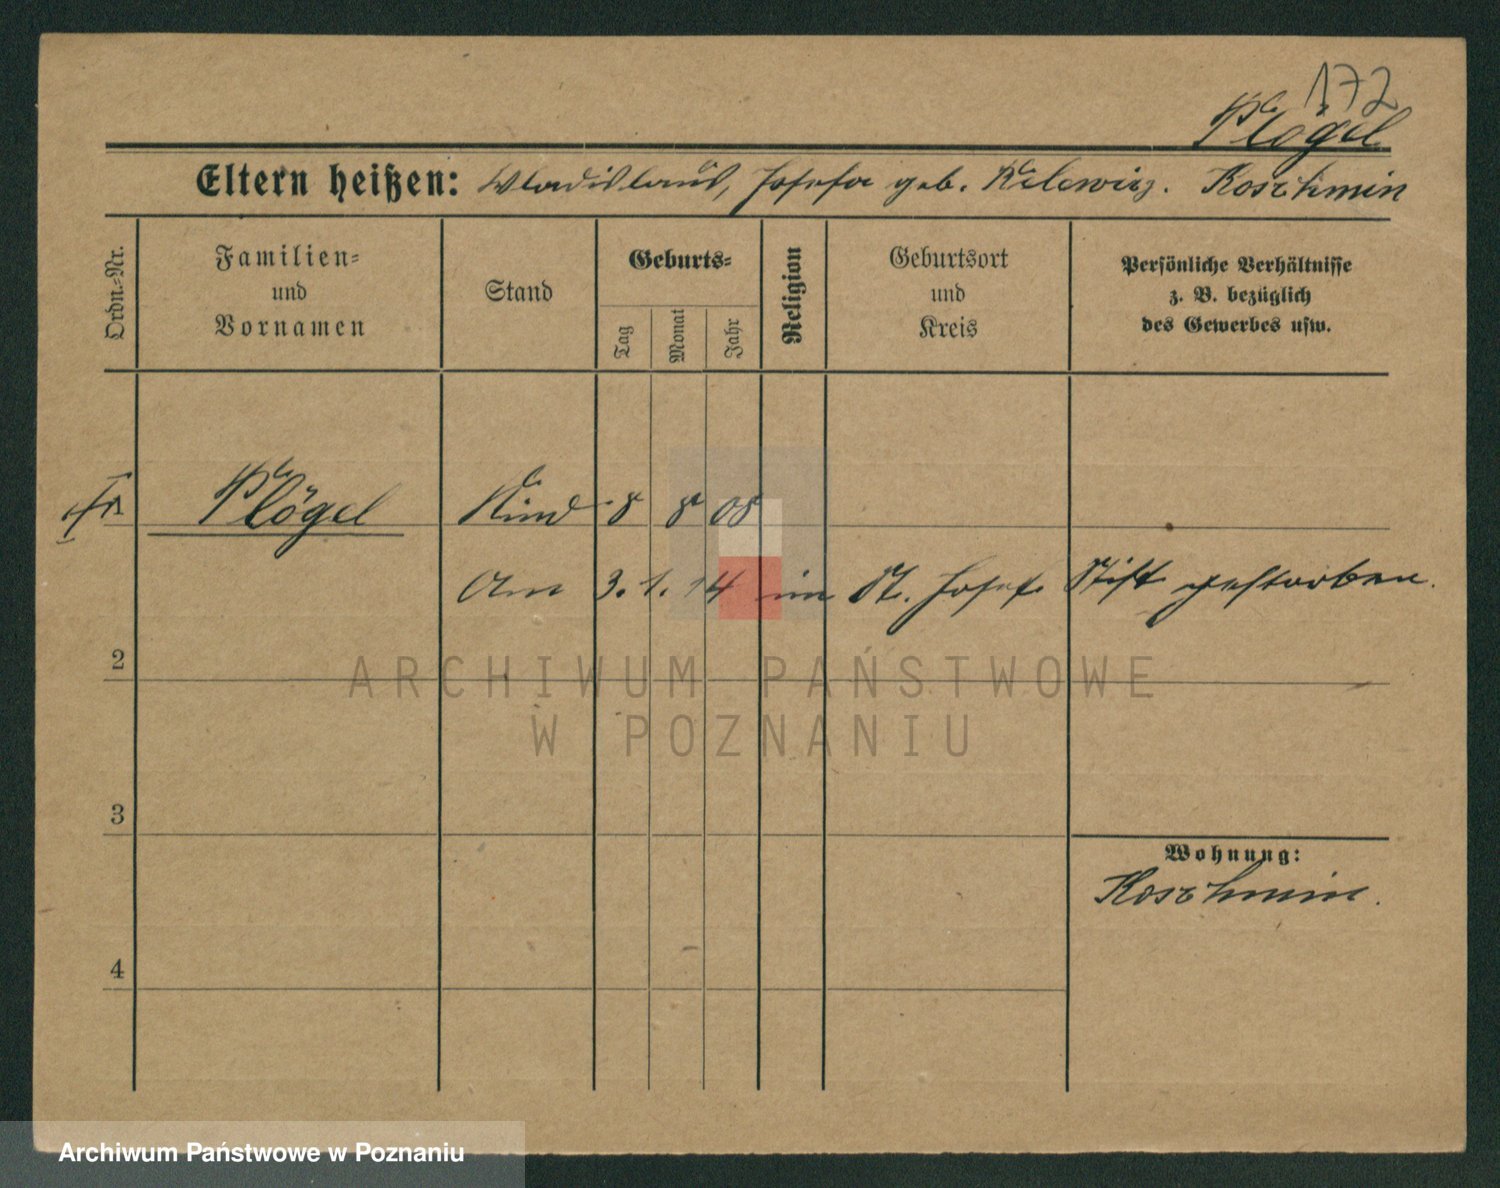 172
Plögel
Eltern heißen: Wladislaus, Josefa geb. Koschmin
Ordn.-Nr.
Familien-
und
Vornamen
Stand
Geburts-
Tag
Monat
Jahr
Religion
Geburtsort
und
Kreis
Persönliche Verhältnisse
z. B. bezüglich
des Gewerbes usw.
Plögel Kind 8 8 08
Am 3. 1. 14 im St. Josef Stift gestorben.
2
ARCHIWUM PAŃSTWOWE
W POZNANIU
3
Wohnung:
Koschmin.
4
Archiwum Państwowe w Poznaniu